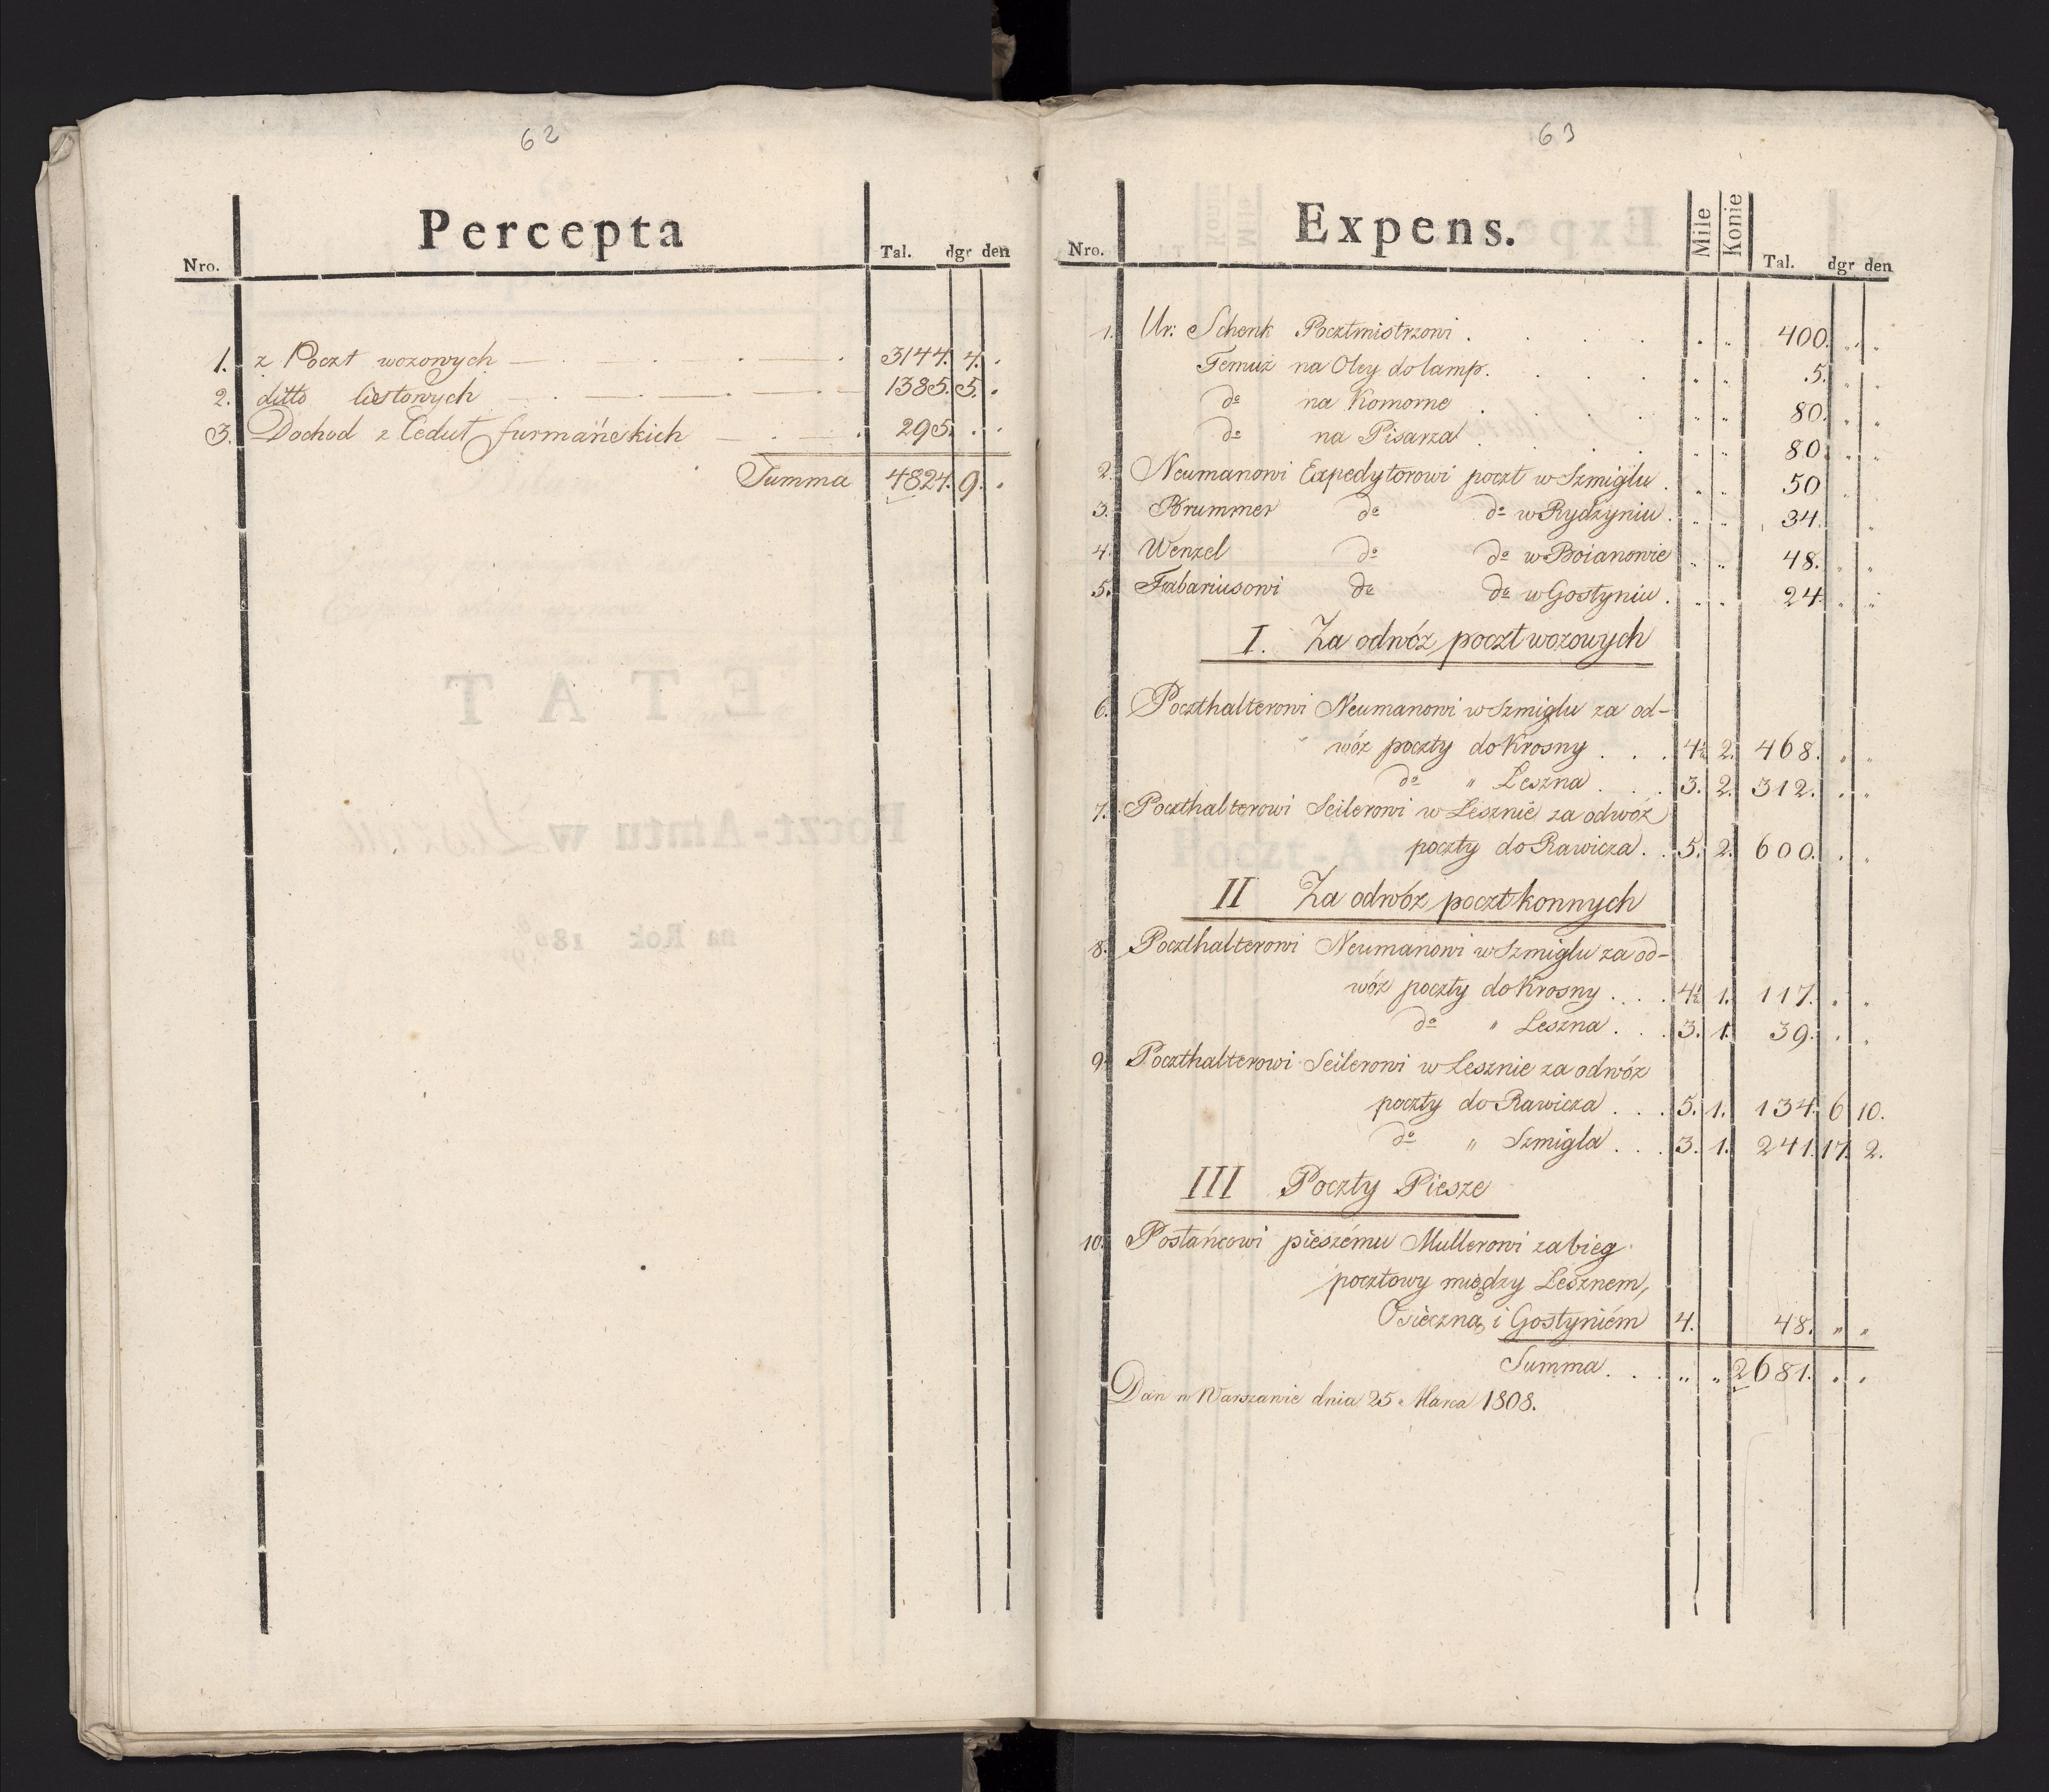 62
Percepta
Nro. Tal. dgr den
1. z Poczt wozowych 3144. 4. .
2. ditto listowych 1385. 5. .
3. Dochod z Ceduł furmańskich 295. . .
Summa 4824. 9. .
63
Expens.
Nro. Mile Konie Tal. dgr den
1. Ur: Schenk Pocztmistrzowi . . . . 400. „ „
Temuż na Oley do lamp. . . . 5. „ „
do na Komorne . . . . 80. „ „
do na Pisarza . . . . 80. „ „
2. Neumanowi Expedytorowi poczt w Szmiglu . 50 „ „
3. Brummer do do w Rydzyniu . 34. „ „
4. Wenzel do do w Boianowie 48. „ „
5. Fabariusowi do do w Gostyniu . 24. „ „
I. Za odwóz poczt wozowych
6. Poczthalterowi Neumanowi w Szmiglu za od-
wóz poczty do Krosny . . . 4½ 2. 468. „ „
do „ Leszna . . . 3. 2. 312. „ „
7. Poczthalterowi Seilerowi w Lesznie za odwóz
poczty do Rawicza . . 5. 2. 600. „ „
II Za odwóz poczt konnych
8. Poczthalterowi Neumanowi w Szmiglu za od-
wóz poczty do Krosny . . . 4½ 1. 117. „ „
do „ Leszna . . . 3. 1. 39. „ „
9. Poczthalterowi Seilerowi w Lesznie za odwóz
poczty do Rawicza . . . 5. 1. 134. 6 10.
do „ Szmigla . . . 3. 1. 241. 17. 2.
III Poczty Piesze
10. Posłańcowi pieszému Mullerowi za bieg
pocztowy między Lesznem,
Osieczną i Gostyniém 4. 48. „ „
Summa . . . „ „ 2681. „ „
Dan w Warszawie dnia 25 Marca 1808.